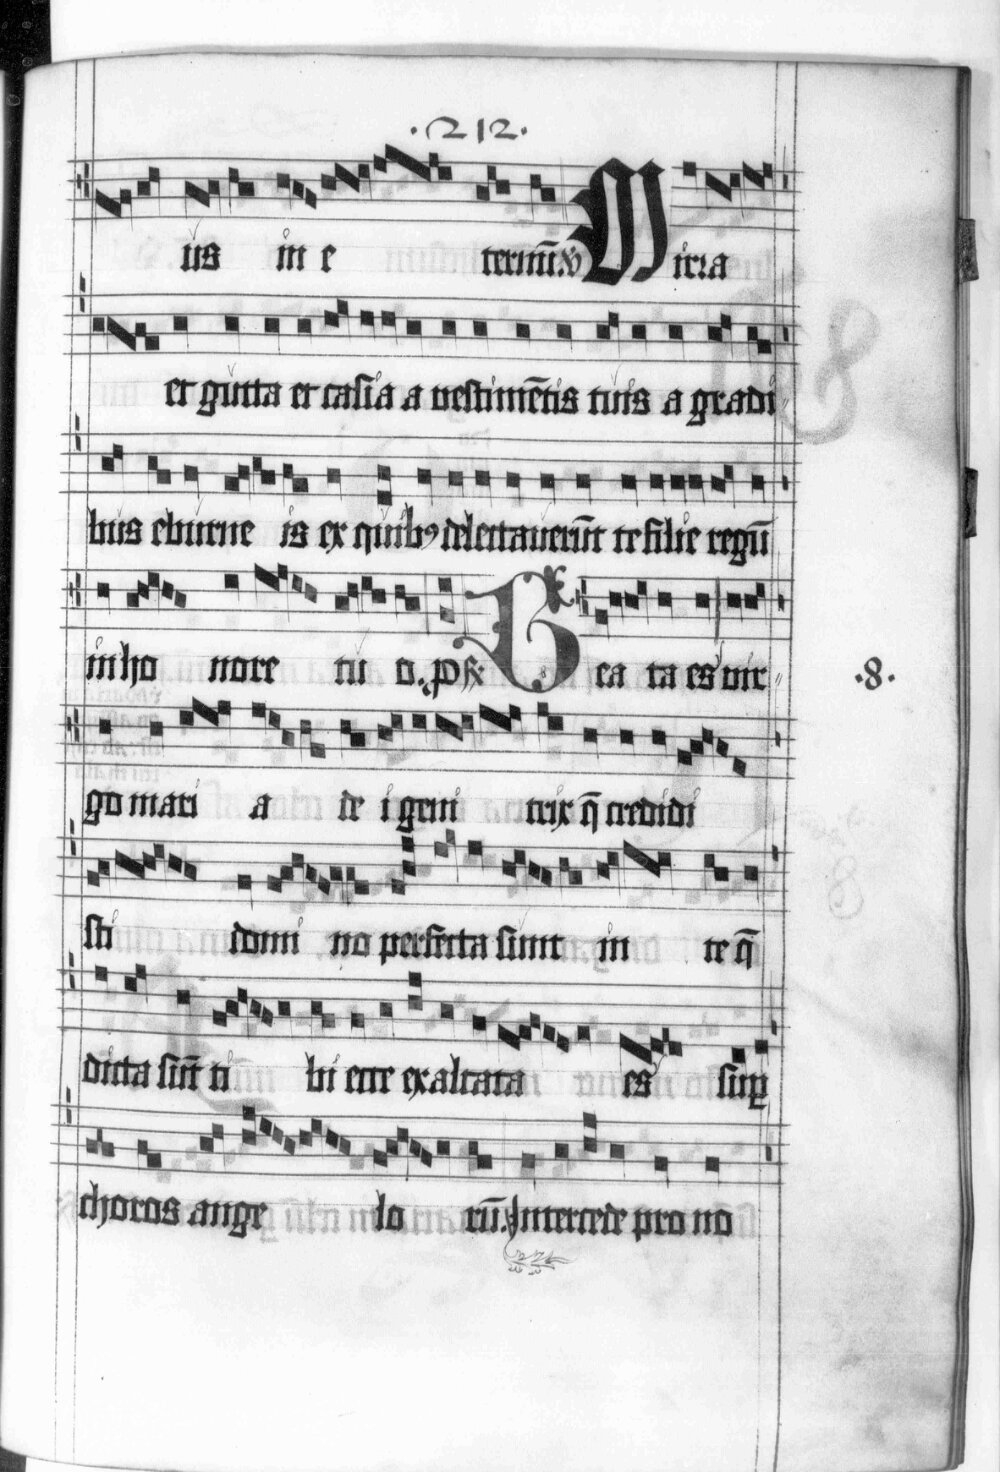 ·212·
us in e ternũ. ℣ Mirra
et gutta et casia a vestimẽtis tuis a gradi
bus eburne is ex quibꝰ delectauerũt te filie regũ
in ho nore tu o. p̃s ℟ Bea ta es vir
·8·
go mari a de i geni trix q̃ credidi
sti domi no perfecta sunt in te q̃
dicta sũt ti bi ecce exaltata es suꝑ
choros ange lo rũ. Intercede pro no